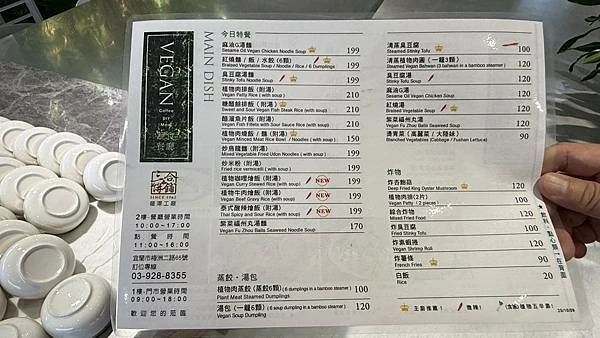 VEGAN
Coffee
DIY
Meal
餐廳
六合
餅舖
SINCE 1962
運澤工廠
2樓‧餐廳營業時間
10:00~17:00
點餐時間
11:00~16:00
宜蘭市梅洲二路65號
訂位專線
03-928-8355
1樓‧門市營業時間
09:00~18:00
歡迎您的蒞臨
MAIN DISH
今日特餐
麻油G湯麵 199
Sesame Oil Vegan Chicken Noodle Soup
紅燒麵 / 飯 / 水餃 (6顆) 199
Braised Vegetable Soup / Noodle / Rice / 6 Dumplings
臭豆腐湯麵 199
Stinky Tofu Noodle Soup
植物肉排飯 (附湯) 210
Vegan Patty Rice ( with soup )
糖醋餘排飯 (附湯) 210
Sweet and Sour Vegan Fish Steak Rice (with soup)
酷溜魚片飯 (附湯) 210
Vegan Fish Fillets with Sour Sauce Rice (with soup)
植物肉燥飯 / 麵 (附湯) 150
Vegan Minced Meat Rice Bowl / Noodles ( with soup )
炒烏龍麵 (附湯) 199
Mixed Vegetable Fried Udon Noodles ( with soup)
炒米粉 (附湯) 199
Fried rice vermicelli ( with soup)
植物咖哩燴飯 (附湯) NEW 199
Vegan Curry Stewed Rice (with soup)
植物牛肉燴飯 (附湯) NEW 199
Vegan Beef Gravy Rice (with soup)
泰式酸辣燴飯 (附湯) NEW 199
Thai Spicy and Sour Rice ( with soup)
紫菜福州丸湯麵 170
Vegan Fu Zhou Balls Seaweed Noodle Soup
蒸餃‧湯包
植物肉蒸餃 (蒸餃6顆) ( 6 dumplings in a bamboo steamer ) 100
Plant Meat Steamed Dumplings
湯包 (一籠6顆) ( 6 soup dumpling in a bamboo steamer ) 120
Vegan Soup Dumpling
清蒸臭豆腐 100
Steamed Stinky Tofu
清蒸植物肉圓 (一籠3顆) 120
Steamed Vegan Bahwan (3 bahwan in a bamboo steamer )
臭豆腐湯 120
Stinky Tofu Soup
麻油G湯 120
Sesame Oil Vegan Chicken Soup
紅燒湯 120
Braised Vegetable Soup
紫菜福州丸湯 90
Vegan Fu Zhou Balls Seaweed Soup
燙青菜 (高麗菜 / 大陸妹) 60
Blanched Vegetables (Cabbage / Fushan Lettuce)
炸物
炸杏鮑菇 120
Deep Fried King Oyster Mushroom
植物肉排(2片) 100
Vegan Patty ( 2 pieces )
綜合炸物 120
Mixed Fried Food
炸臭豆腐 120
Fried Stinky Tofu
炸素蝦捲 120
Vegan Shrimp Roll
炸薯條 90
French Fries
白飯 20
Rice
主廚推薦!
微辣!
◆飲料、點心類,在背面